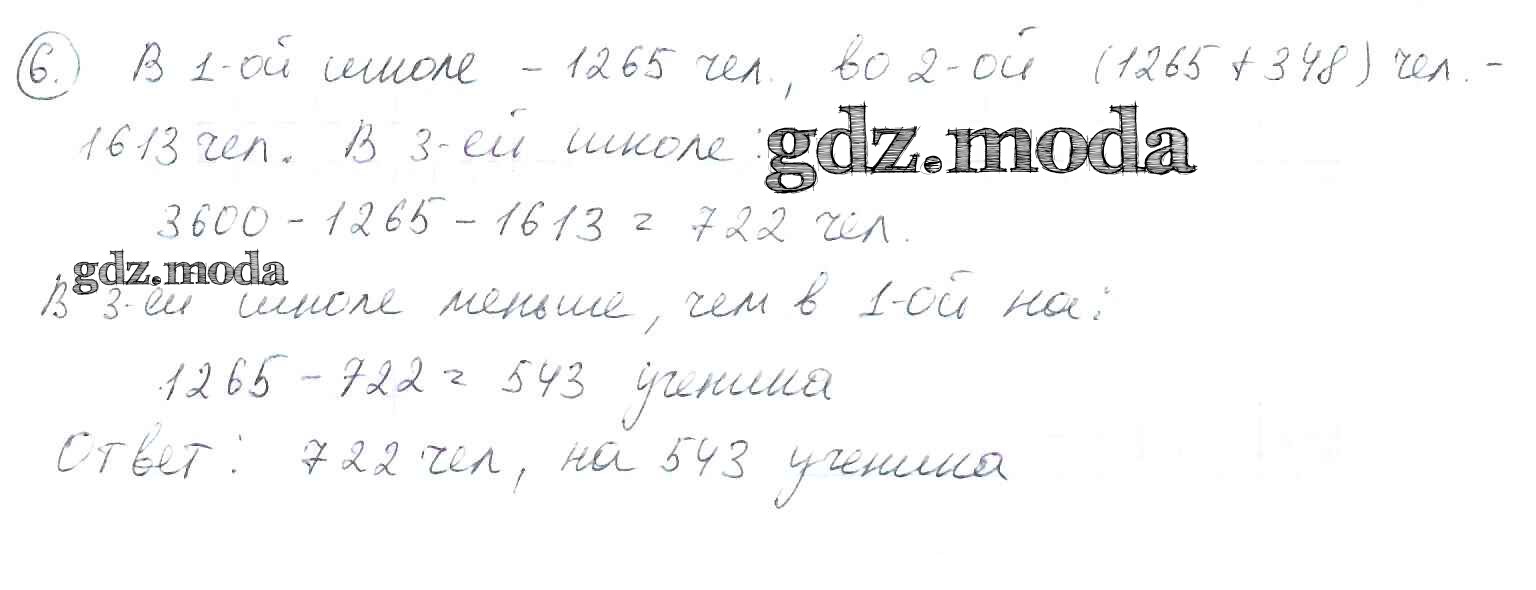 6. В 1-ой школе – 1265 чел., во 2-ой (1265 + 348) чел. –
1613 чел. В 3-ей школе: gdz.moda
3600 – 1265 – 1613 = 722 чел.
gdz.moda
В 3-ей школе меньше, чем в 1-ой на:
1265 – 722 = 543 ученика
Ответ: 722 чел, на 543 ученика